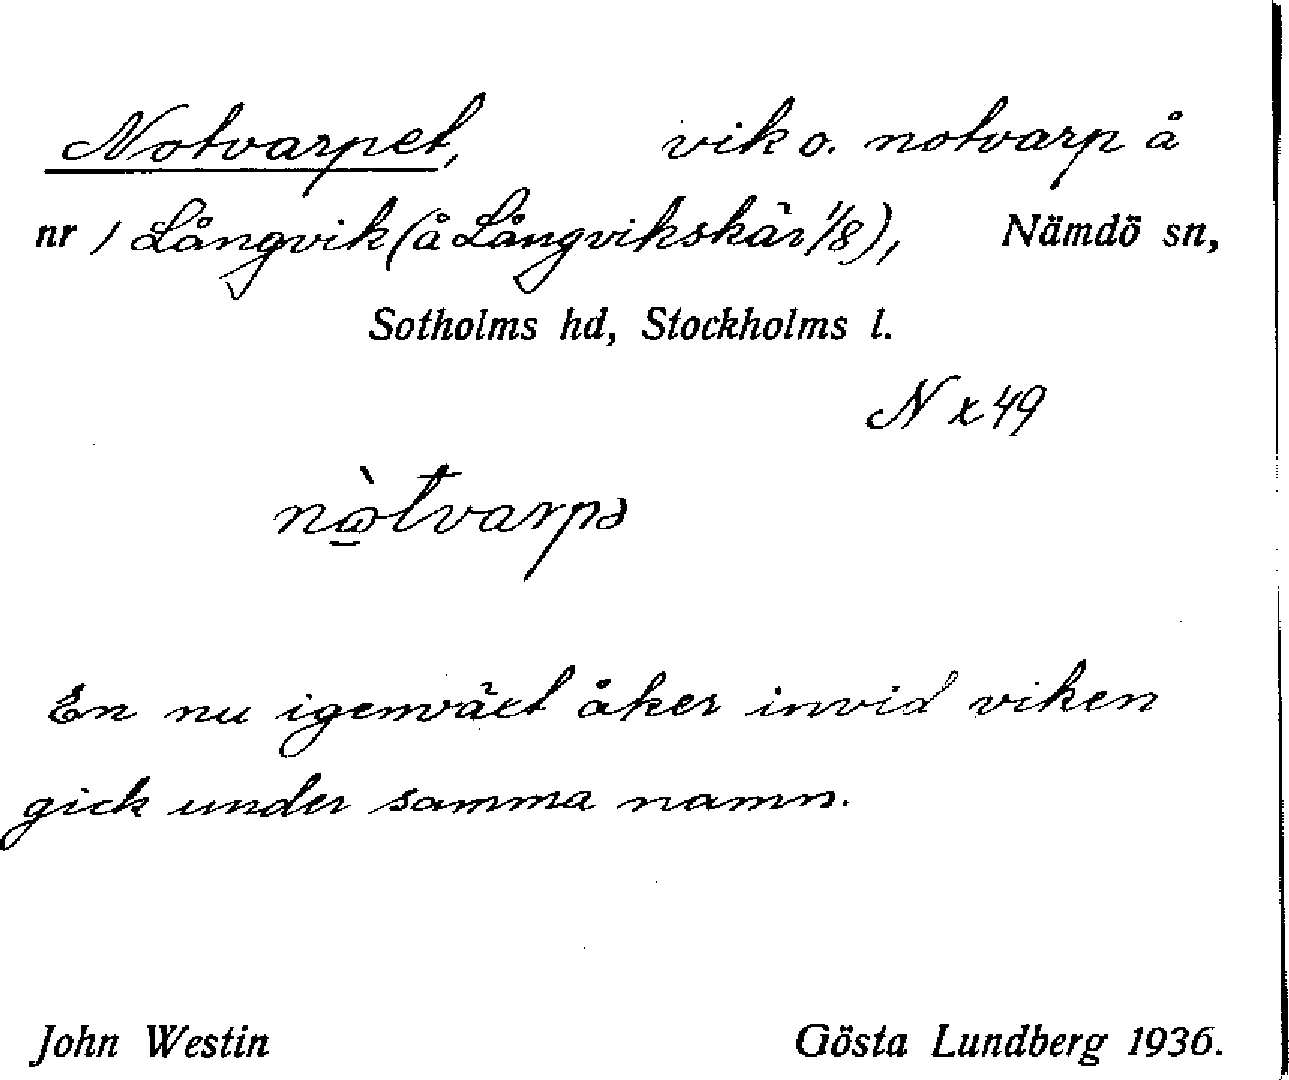 Notvarpet, vik o. notvarp å
nr 1 Långvik (å Långvikskär 1/8), Nämdö sn,
Sotholms hd, Stockholms l.
N x 49
nὼ̲tvarpə
En nu igenväxt åker invid viken
gick under samma namn.
John Westin Gösta Lundberg 1936.